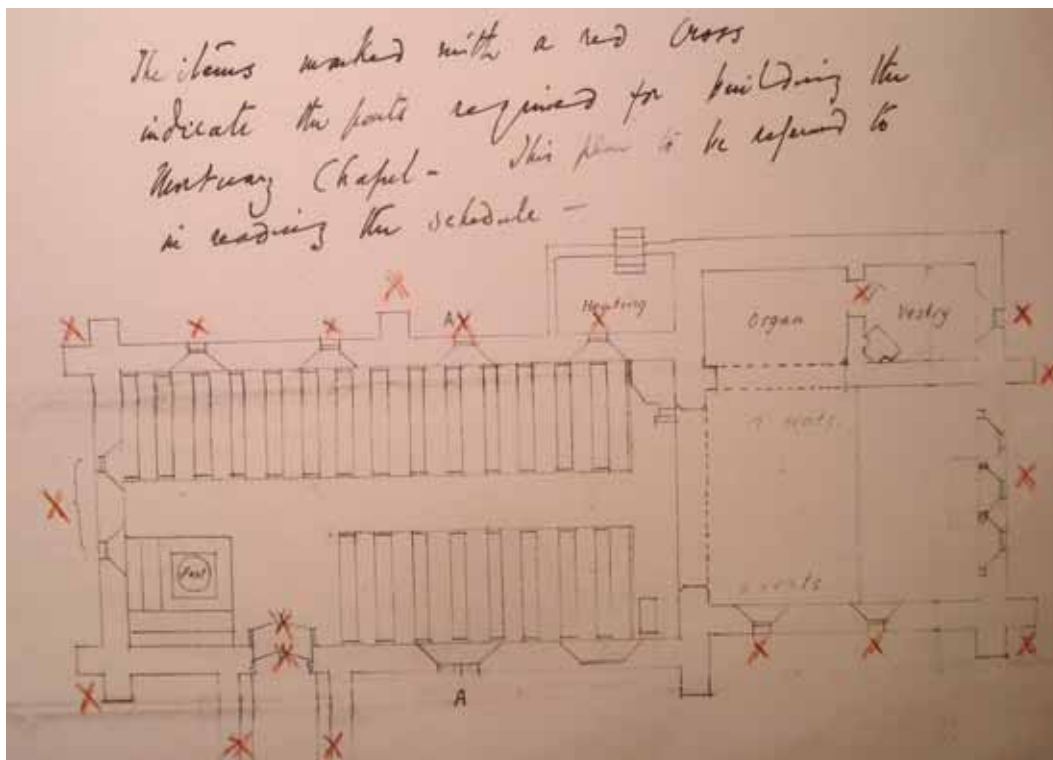 The items marked with a red cross
indicate the parts required for building the
Mortuary Chapel - This plan to be referred to
in reading the schedule —
A
Heating
Organ
Vestry
seats.
Font
seats
A